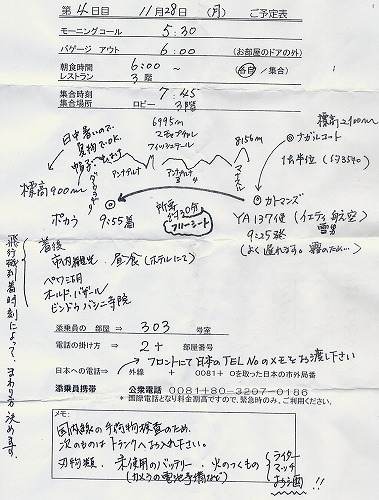 第4日目 11月28日 (月) ご予定表
モーニングコール 5:30
バゲージ アウト 6:00 (お部屋のドアの外)
朝食時間 6:00 ~ (各自/集合)
レストラン 3階
集合時刻 7:45
集合場所 ロビー 3階
日中暑いので、
夏物でOK.
帽子
6995m
マチャプチャレ
フィッシュテール
8156m
マナスル
標高2100m
ナガルコット
標高900m
ダウラギリ
アンナプルナ
アンナプルナ
3 4
ポカラ 9:55着
所要
30分
フリーシート
カトマンズ
YA137便 (イエティ航空)
雪男
9:25発
(よく遅れます。霧のため…)
着後
市内観光、昼食(ホテルにて)
ペワ湖
オールド・バザール
ビンドゥバシニ寺院
飛行機到着時刻によって、まわり方決めます。
添乗員の 部屋 ⇒ 303 号室
電話の掛け方 ⇒ 2 + 部屋番号
フロントにて日本のTEL Noのメモをお渡し下さい
日本への電話⇒ 外線 + 0081+ 0を取った日本の市外局番
添乗員携帯 公衆電話 0081+80-3207-0186
* 国際電話となり料金割高ですので、緊急時のみ、ご利用ください。
メモ:
国内線の手荷物検査のため、
次のものはトランクへお入れ下さい。
刃物類、未使用のバッテリー、火のつくもの
(カメラの電池予備など)
ライター
マッチ
お酒!!